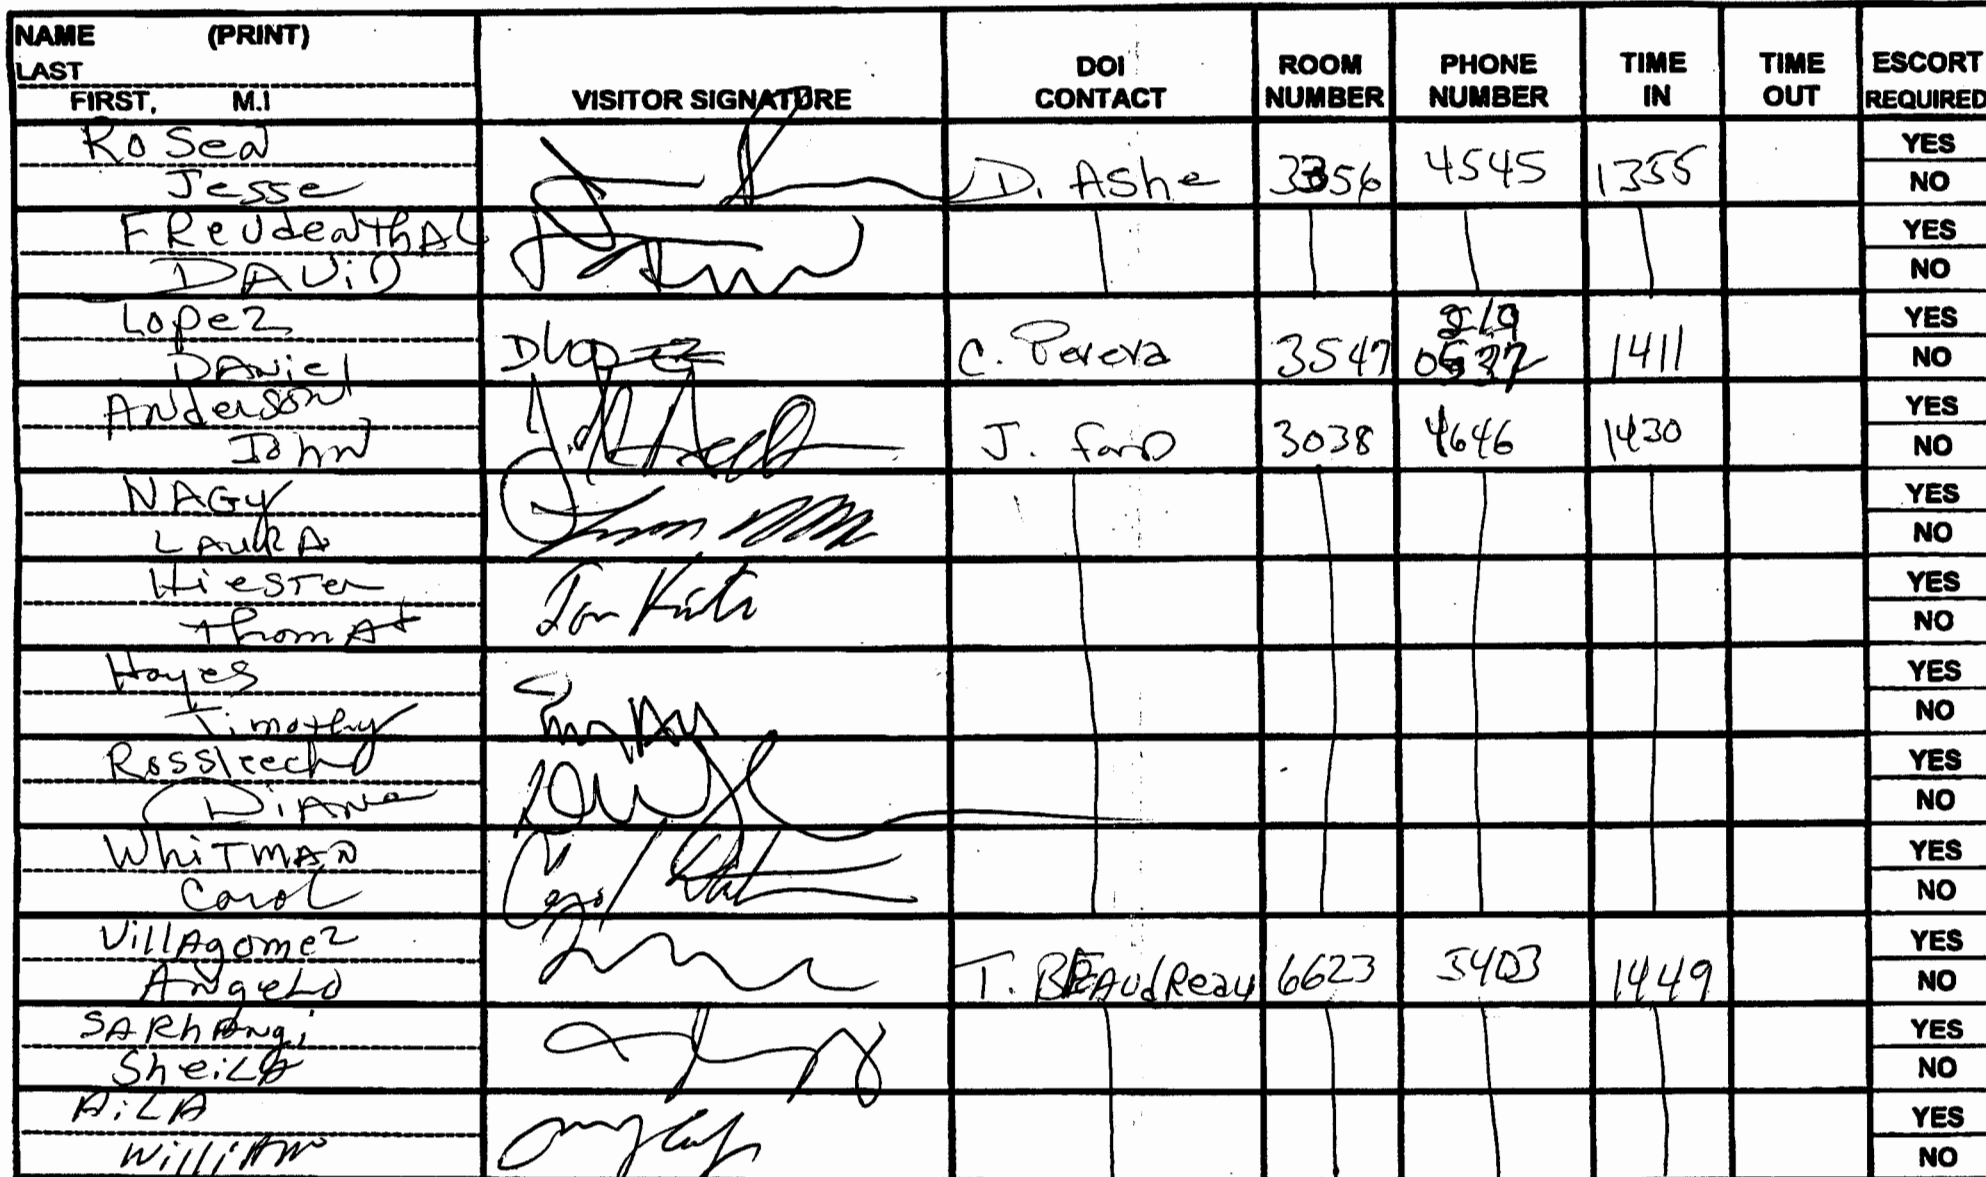 NAME (PRINT)
LAST
FIRST, M.I
VISITOR SIGNATURE
DOI CONTACT
ROOM NUMBER
PHONE NUMBER
TIME IN
TIME OUT
ESCORT REQUIRED
Rosen
Jesse
D. Ashe 3356 4545 1355
YES
NO
FReudenthAL
DAViD
YES
NO
Lopez
DANiel
DLopez
3547 1411
YES
NO
Anderson
John
J. Ford 3038 4646 1430
YES
NO
NAGy
LAURA
YES
NO
Hiester
Thomas
YES
NO
Hayes
Timothy
YES
NO
DiANe
YES
NO
WhiTMAN
Carol
Carol
YES
NO
VillAgomez
AngeLo
T. BEAudReau 6623 5403 1449
YES
NO
SARhAngi
SheiLA
YES
NO
AiLA
WilliAm
YES
NO